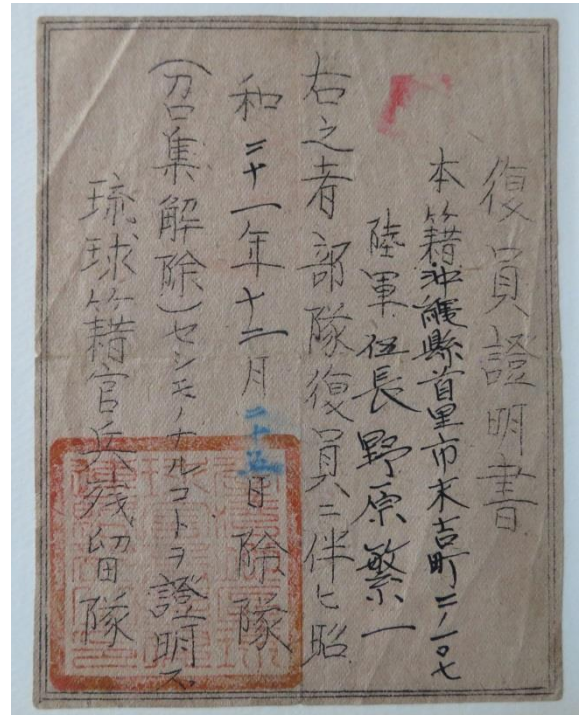 復員證明書
本籍沖縄縣首里市末吉町二ノ一〇七
陸軍伍長野原繁一
右之者部隊復員ニ伴ヒ昭
和二十一年十二月二十五日除隊
(召集解除)セシモノナルコトヲ證明ス
琉球籍官兵残留隊